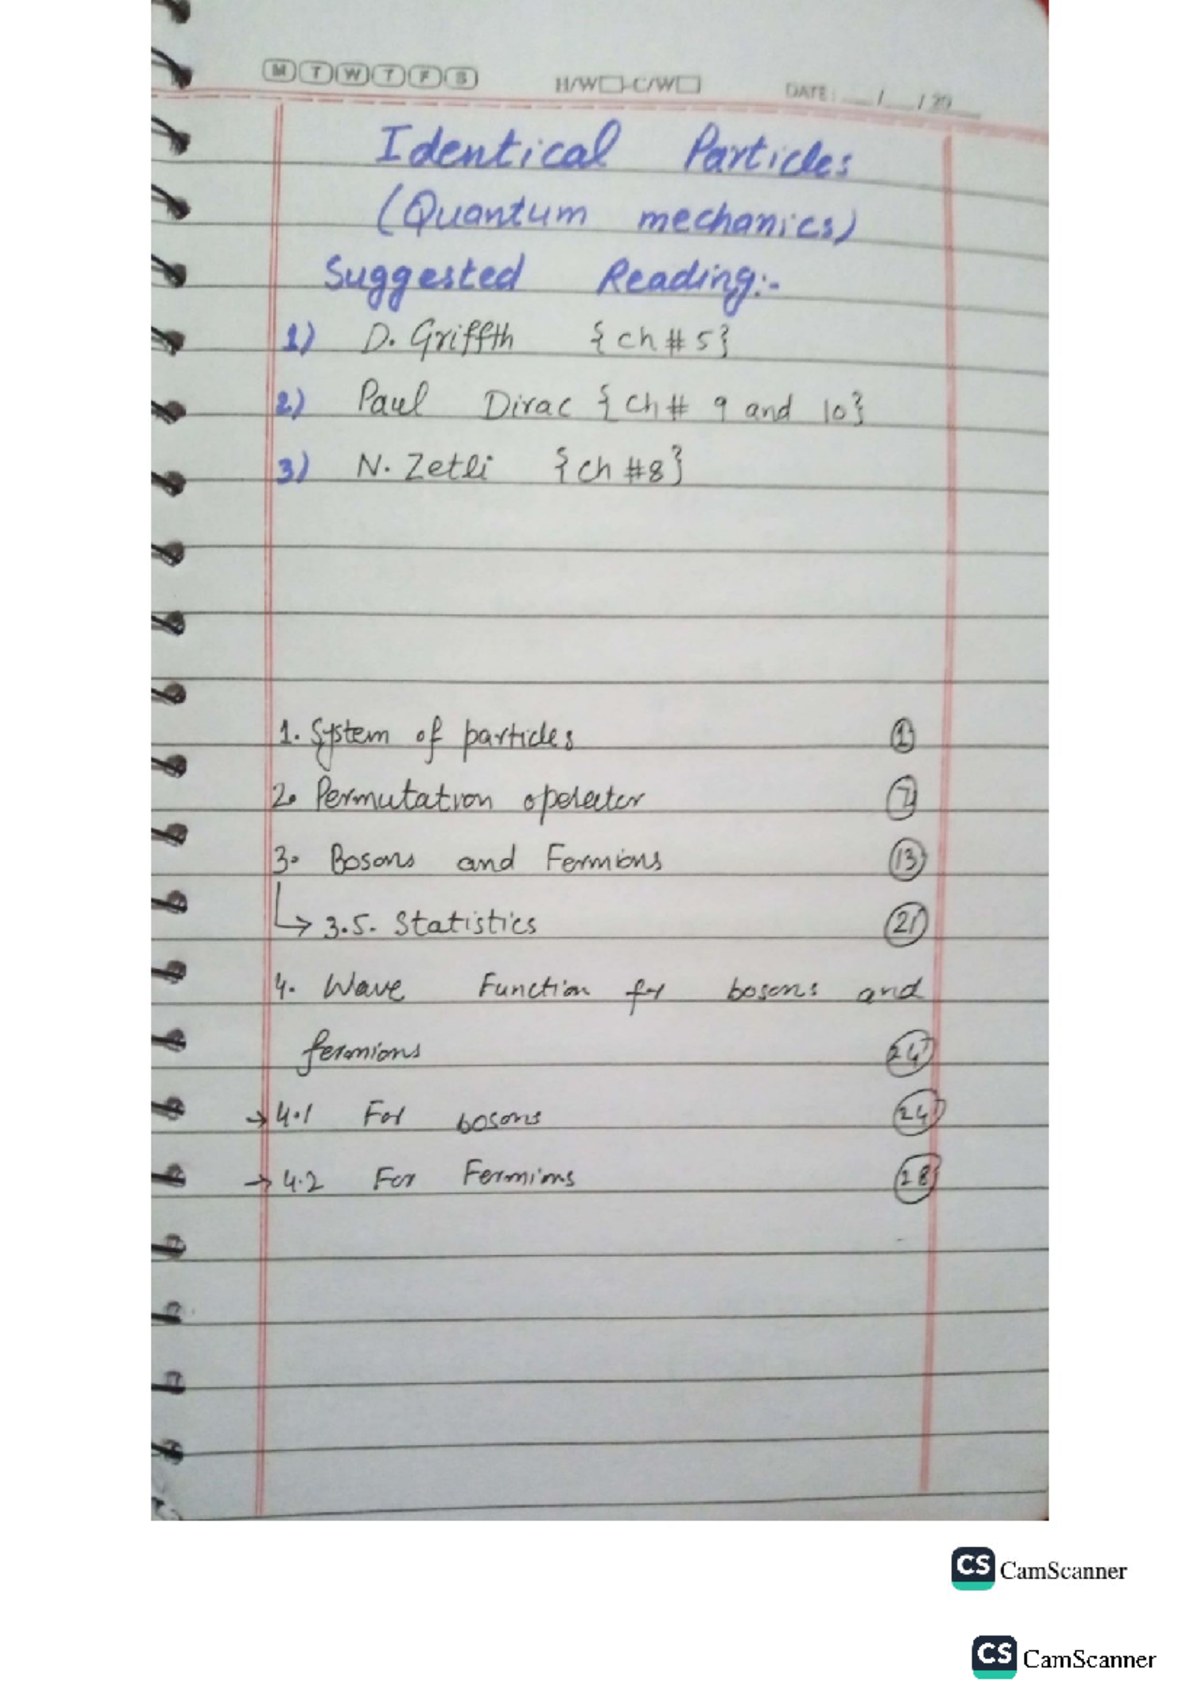 M T W T F S H/W C/W DATE: __/__/20__
Identical Particles
(Quantum mechanics)
Suggested Reading:-
1) D. Griffth {ch # 5}
2) Paul Dirac {ch# 9 and 10}
3) N. Zetli {ch #8}
1. System of particles 1
2. Permutation operator 7
3. Bosons and Fermions 13
↳ 3.5. Statistics 21
4. Wave Function for bosons and
fermions 24
→ 4.1 For bosons 24
→ 4.2 For Fermions 28
CS CamScanner
CS CamScanner